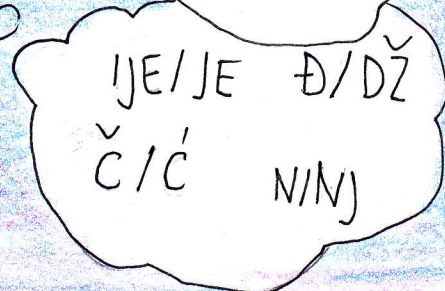 IJE/JE Đ/DŽ
Č/Ć N/NJ